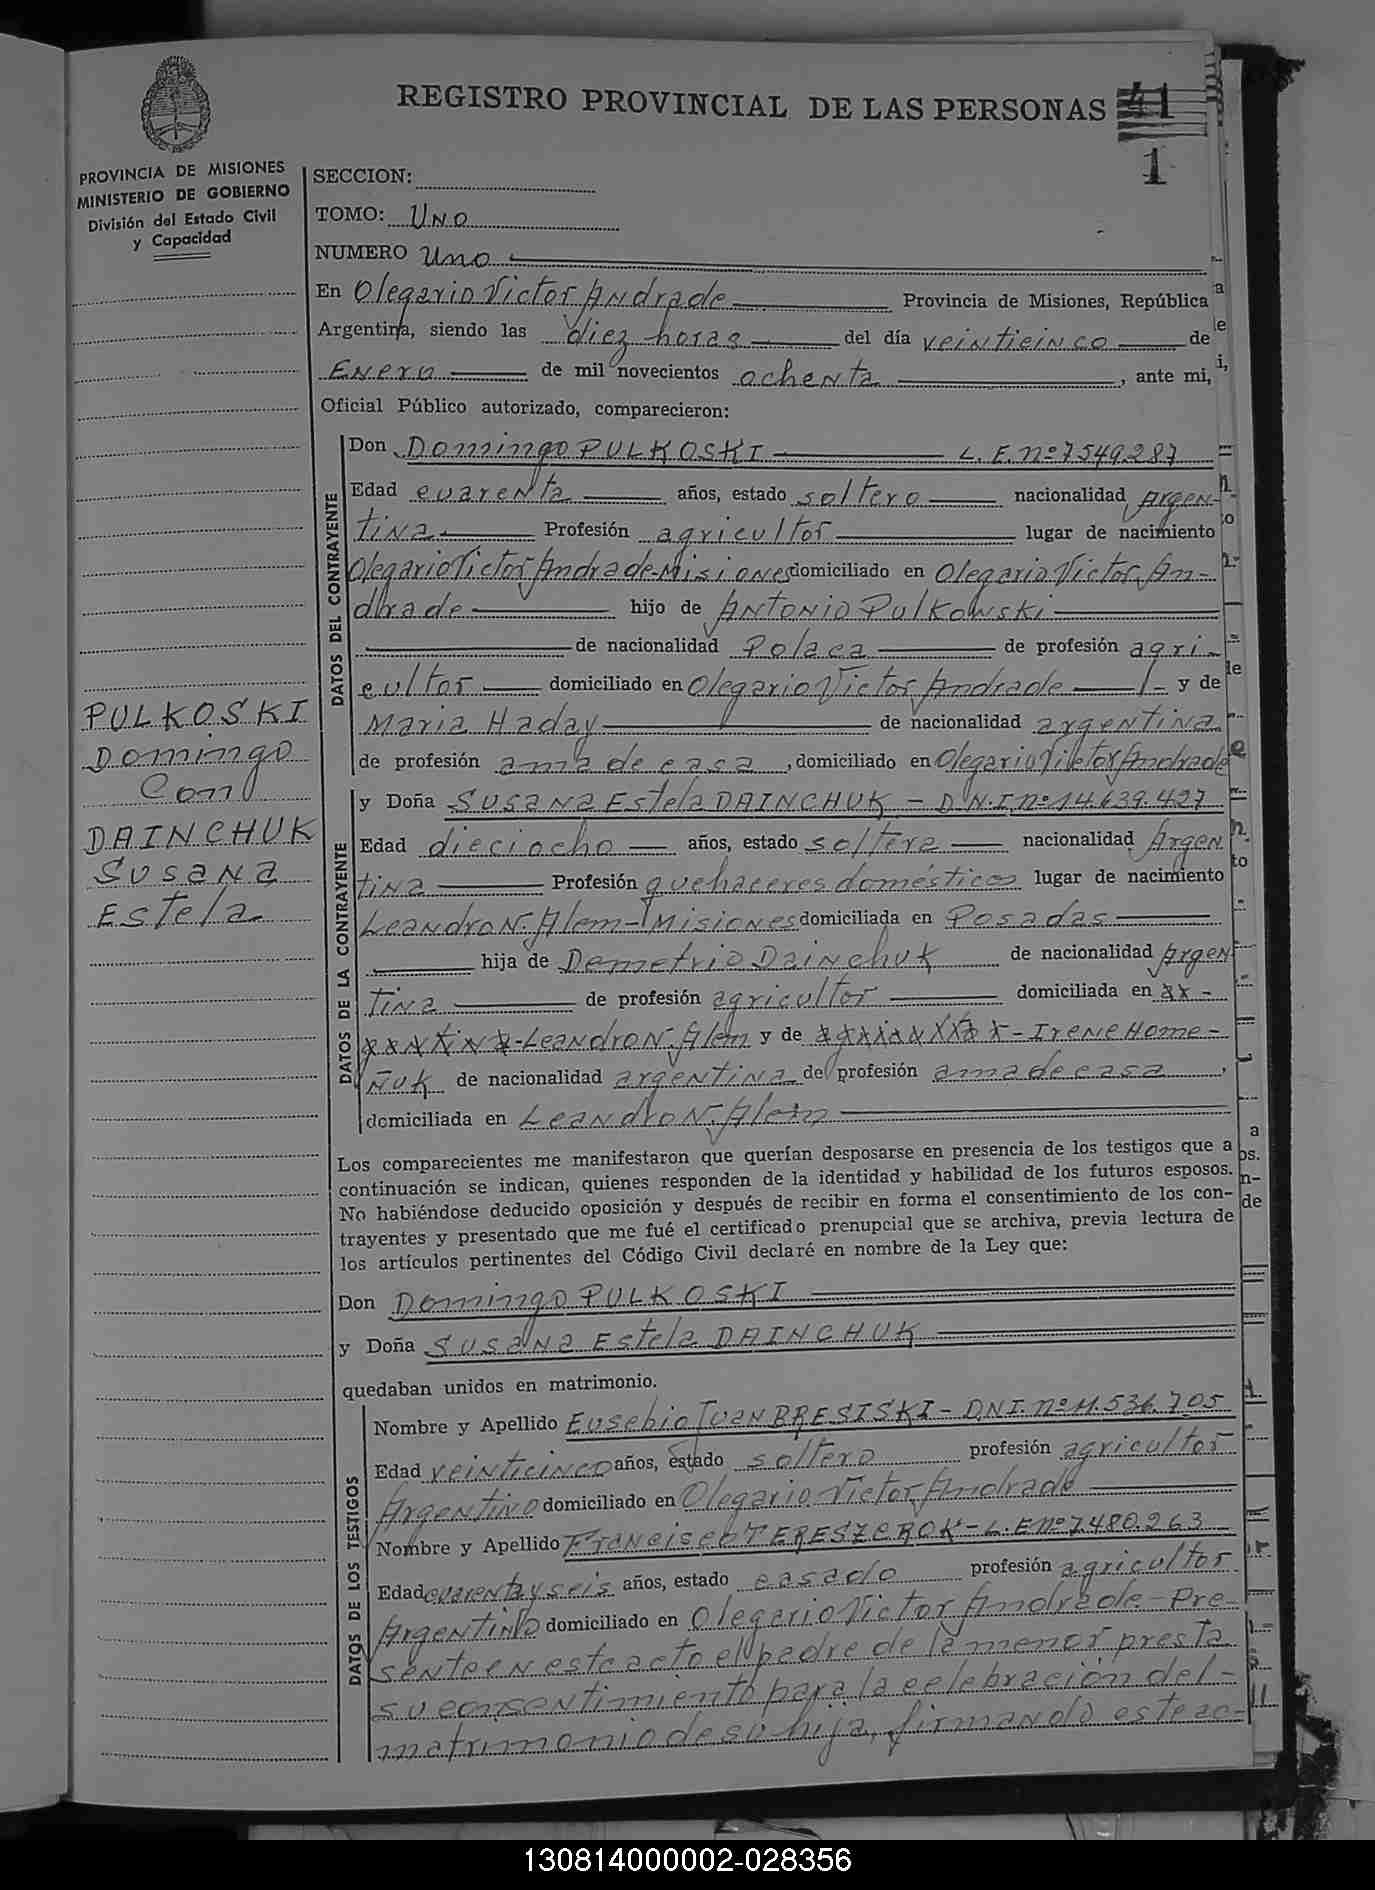 REGISTRO PROVINCIAL DE LAS PERSONAS
1
PROVINCIA DE MISIONES
MINISTERIO DE GOBIERNO
División del Estado Civil
y Capacidad
SECCION:
TOMO: Uno
NUMERO Uno
En Olegario Victor Andrade Provincia de Misiones, República
Argentina, siendo las diez horas del día veinticinco de
Enero de mil novecientos ochenta, ante mi,
Oficial Público autorizado, comparecieron:
PULKOSKI
Domingo
Con
DAINCHUK
Susana
Estela
DATOS DEL CONTRAYENTE
Don Domingo PULKOSKI L. E. nº 7549.287
Edad cuarenta años, estado soltero nacionalidad Argen-
tina Profesión agricultor lugar de nacimiento
Olegario Victor Andrade-Misiones domiciliado en Olegario Victor An-
drade hijo de Antonio Pulkowski
de nacionalidad Polaca de profesión agri-
cultor domiciliado en Olegario Victor Andrade y de
Maria Haday de nacionalidad argentina
de profesión ama de casa, domiciliado en Olegario Victor Andrade
DATOS DE LA CONTRAYENTE
y Doña Susana Estela DAINCHUK - D.N.I nº 14.639.427
Edad dieciocho años, estado soltera nacionalidad Argen
tina Profesión quehaceres domésticos lugar de nacimiento
Leandro N. Alem-Misiones domiciliada en Posadas
hija de Demetrio Dainchuk de nacionalidad Argen
tina de profesión agricultor domiciliada en xx -
-Leandro N. Alem y de - Irene Home-
ñuk de nacionalidad argentina de profesión ama de casa,
domiciliada en Leandro N. Alem
Los comparecientes me manifestaron que querían desposarse en presencia de los testigos que a
continuación se indican, quienes responden de la identidad y habilidad de los futuros esposos.
No habiéndose deducido oposición y después de recibir en forma el consentimiento de los con-
trayentes y presentado que me fué el certificado prenupcial que se archiva, previa lectura de
los artículos pertinentes del Código Civil declaré en nombre de la Ley que:
Don Domingo PULKOSKI
y Doña Susana Estela DAINCHUK
quedaban unidos en matrimonio.
DATOS DE LOS TESTIGOS
Nombre y Apellido Eusebio Juan BRESISKI - D.N.I. nº 11.536.705
Edad veinticinco años, estado soltero profesión agricultor
Argentino domiciliado en Olegario Victor Andrade
Nombre y Apellido Francisco TERESZCROK - L.E nº 7.480.263
Edad cuarenta y seis años, estado casado profesión agricultor
Argentino domiciliado en Olegario Victor Andrade - Pre-
sente en este acto el padre de la menor presta
su consentimiento para la celebración del-
matrimonio de su hija, firmando este ac-
130814000002-028356